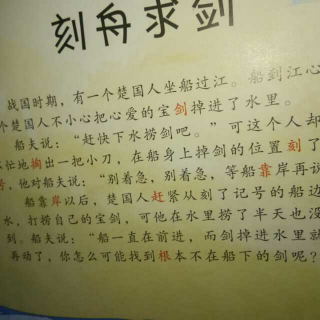 刻舟求剑
战国时期，有一个楚国人坐船过江。船到江心
个楚国人不小心把心爱的宝剑掉进了水里。
船夫说：“赶快下水捞剑吧。”可这个人却
忙地掏出一把小刀，在船身上掉剑的位置刻了
号，他对船夫说：“别着急，别着急，等船靠岸再说
船靠岸以后，楚国人赶紧从刻了记号的船边
水，打捞自己的宝剑，可他在水里捞了半天也没
到。船夫说：“船一直在前进，而剑掉进水里就
再动了，你怎么可能找到根本不在船下的剑呢？